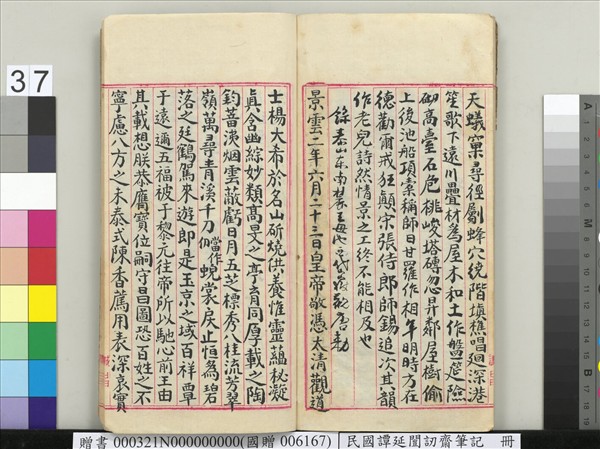 天蟻窠尋徑劚蜂穴繞階塡樵唱廻深港
笙歌下遠川疊材為屋木和土作盤筵險
砌高臺石危挑峻塔磚忽昇鄰屋樹偷
上後池船項槖稱師日甘羅作相年明時方在
德勸爾戒狂顛宋張侍郎師錫追次其韻
作老兒詩然情景之工終不能相及也
景雲二年六月二十三日皇帝敬憑太清觀道
士楊大希於名山斫燒供養惟靈蘊秘凝
眞含幽綜妙類高旻之亭育同厚載之陶
鈞蓄洩烟雲蔽虧日月五芝標秀八柱流芳翠
嶺萬尋青溪千刀
當作
仞
蜺裳戾止恒為碧
落之廷鶴駕來遊即是玉京之域百祥覃
于遠邇五福被于黎元往帝所以馳心前王由
其載想朕恭膺寶位嗣守昌圖恐百姓之不
寧慮八方之未泰式陳香薦用表深衷實
37
贈書 000321N000000000(國贈 006167)
民國譚延闓訒齋筆記 冊
A